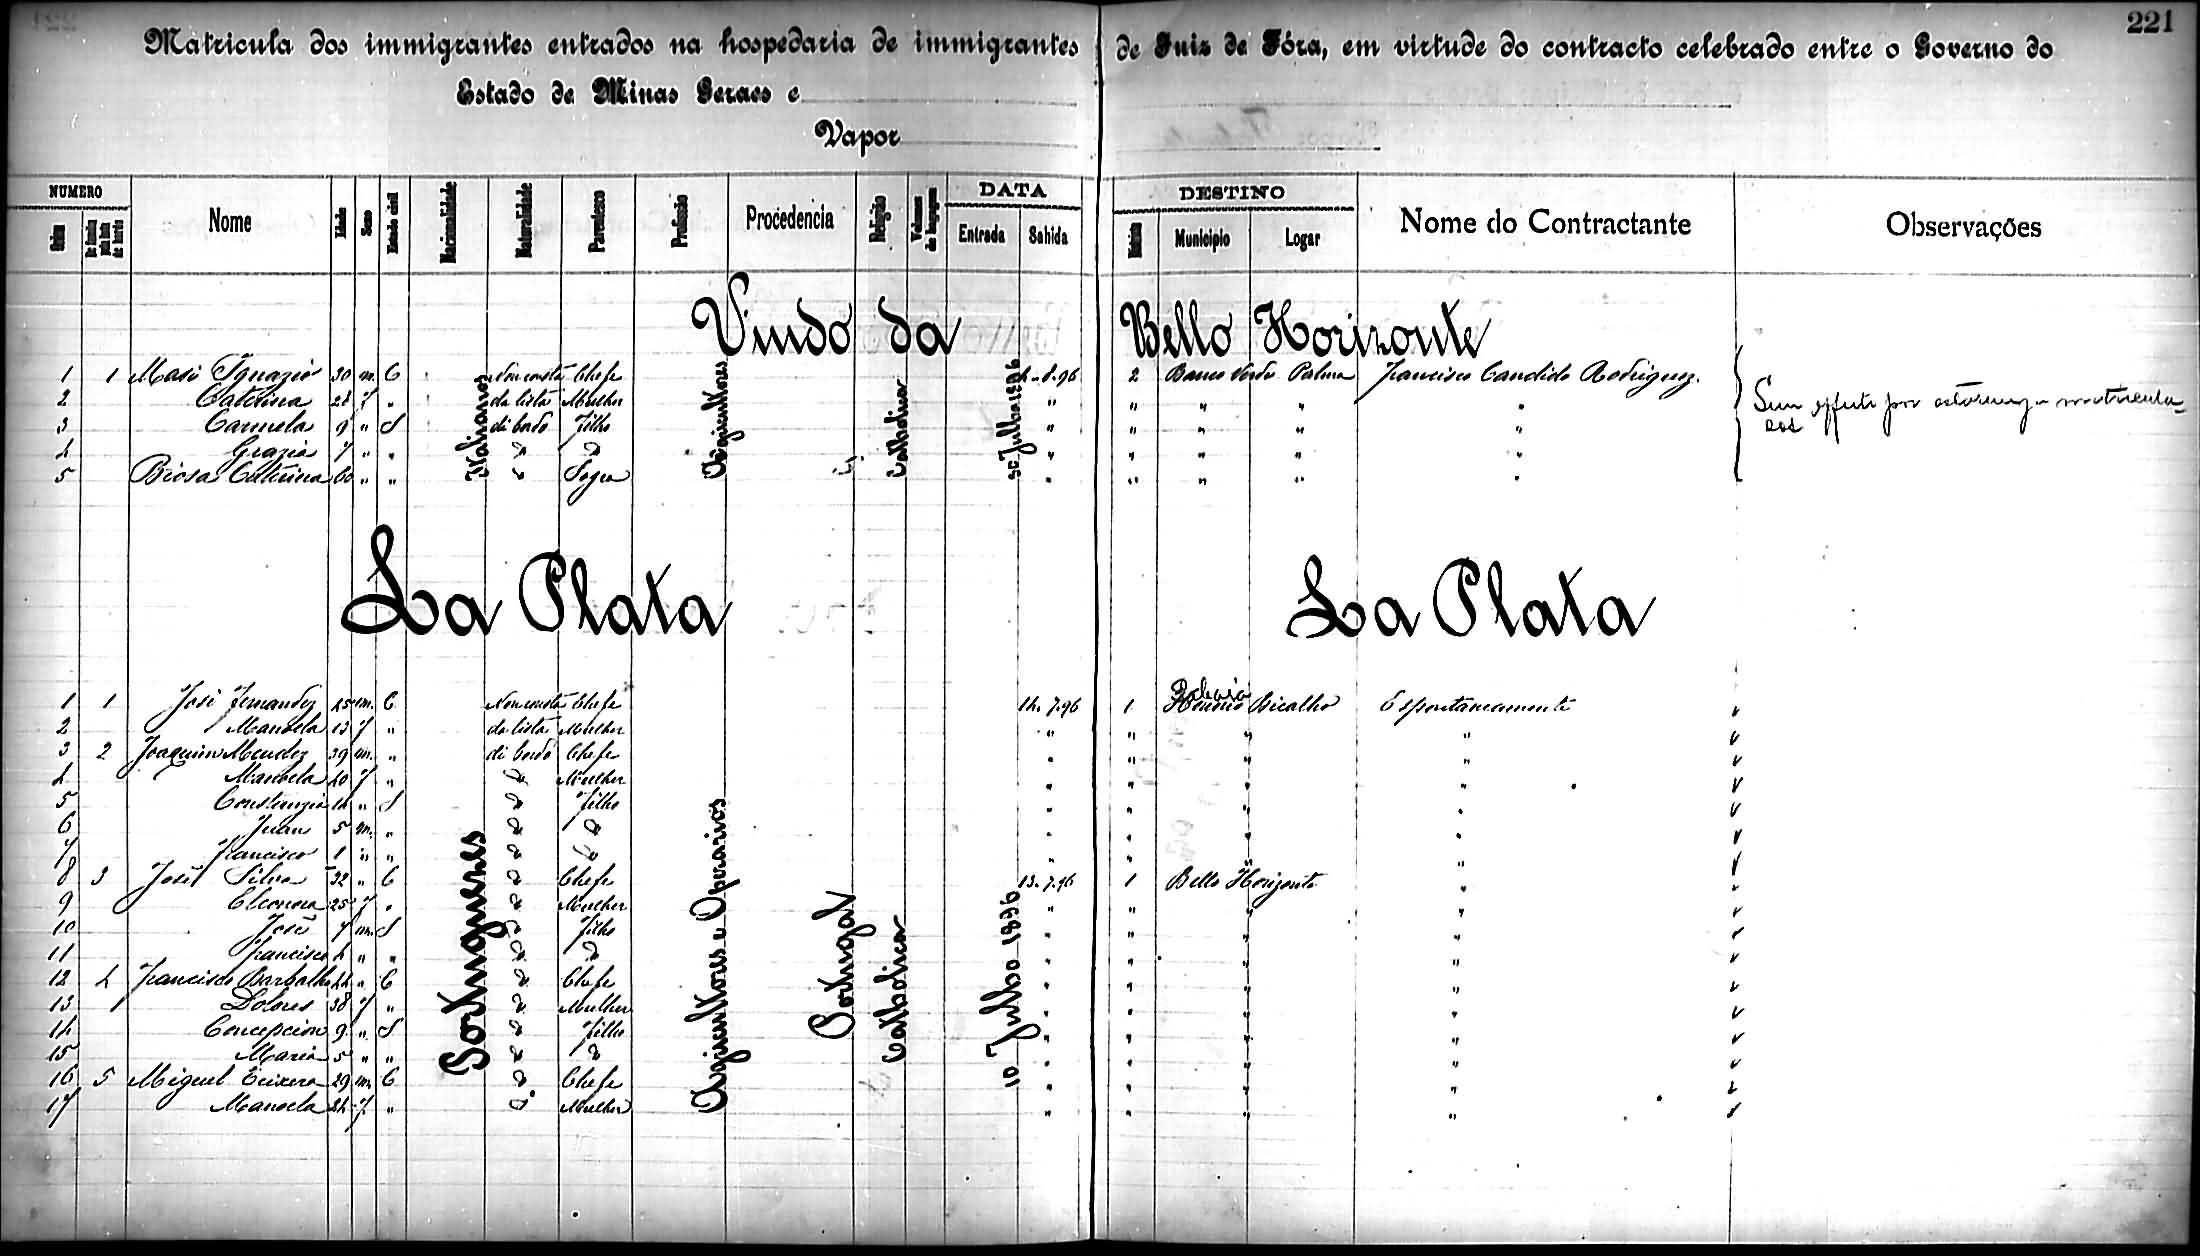 221
Matricula dos immigrantes entrados na hospedaria de immigrantes de Juiz de Fóra, em virtude do contracto celebrado entre o Governo do
Estado de Minas Geraes e
Vapor
NUMERO DATA DESTINO
Nome Idade Sexo Estado civil Nacionalidade Naturalidade Parentesco Profissão Procedencia Religião Volumes de bagagem Entrada Sahida Municipio Logar Nome do Contractante Observações
Vindo da Bello Horizonte
1 1 Masi Ignazio 30 m. C Non consta Chefe 8.96 2 Palma Francisco Candido Rodriguez.
2 Caterina 28 f " da lista Mulher " " " " "
3 Carmela 9 " S di bordo Filho " " " " "
4 Grazia 7 " " " " " " "
5 Caterina 60 " " Sogra " " " " "
Italianos
Agricultores
Catholica
Julho 1896
Sem effeito por
La Plata La Plata
1 1 José Fernandez 25 m. C Non consta Chefe 14.7.96 1 Bicalho Espontaneamente
2 Manoela 23 f " da lista Mulher " " " "
3 2 Joaquim Mendez 39 m. " di bordo Chefe " " " "
4 Manoela 40 f " Mulher " " " "
5 14 " S Filho " " " "
6 Juan 5 m. " " " " "
7 Francisco 1 " " " " " "
8 3 José Silva 32 " C Chefe 13.7.96 1 Bello Horizonte
9 Eleonora 25 f " Mulher " " " "
10 José 7 m. S Filho " " " "
11 Francisco 4 " " " " " "
12 4 Francisco Barbalho 44 " C Chefe " " " "
13 Dolores 38 f " Mulher " " " "
14 Concepcion 9 " S Filho " " " "
15 Maria 5 " " " " " "
16 5 Miguel Teixera 29 m. C Chefe " " " "
17 Manoela 24 f " Mulher " " " "
Portugueses
Agricultores e Operarios
Portugal
Catholica
10 Julho 1896